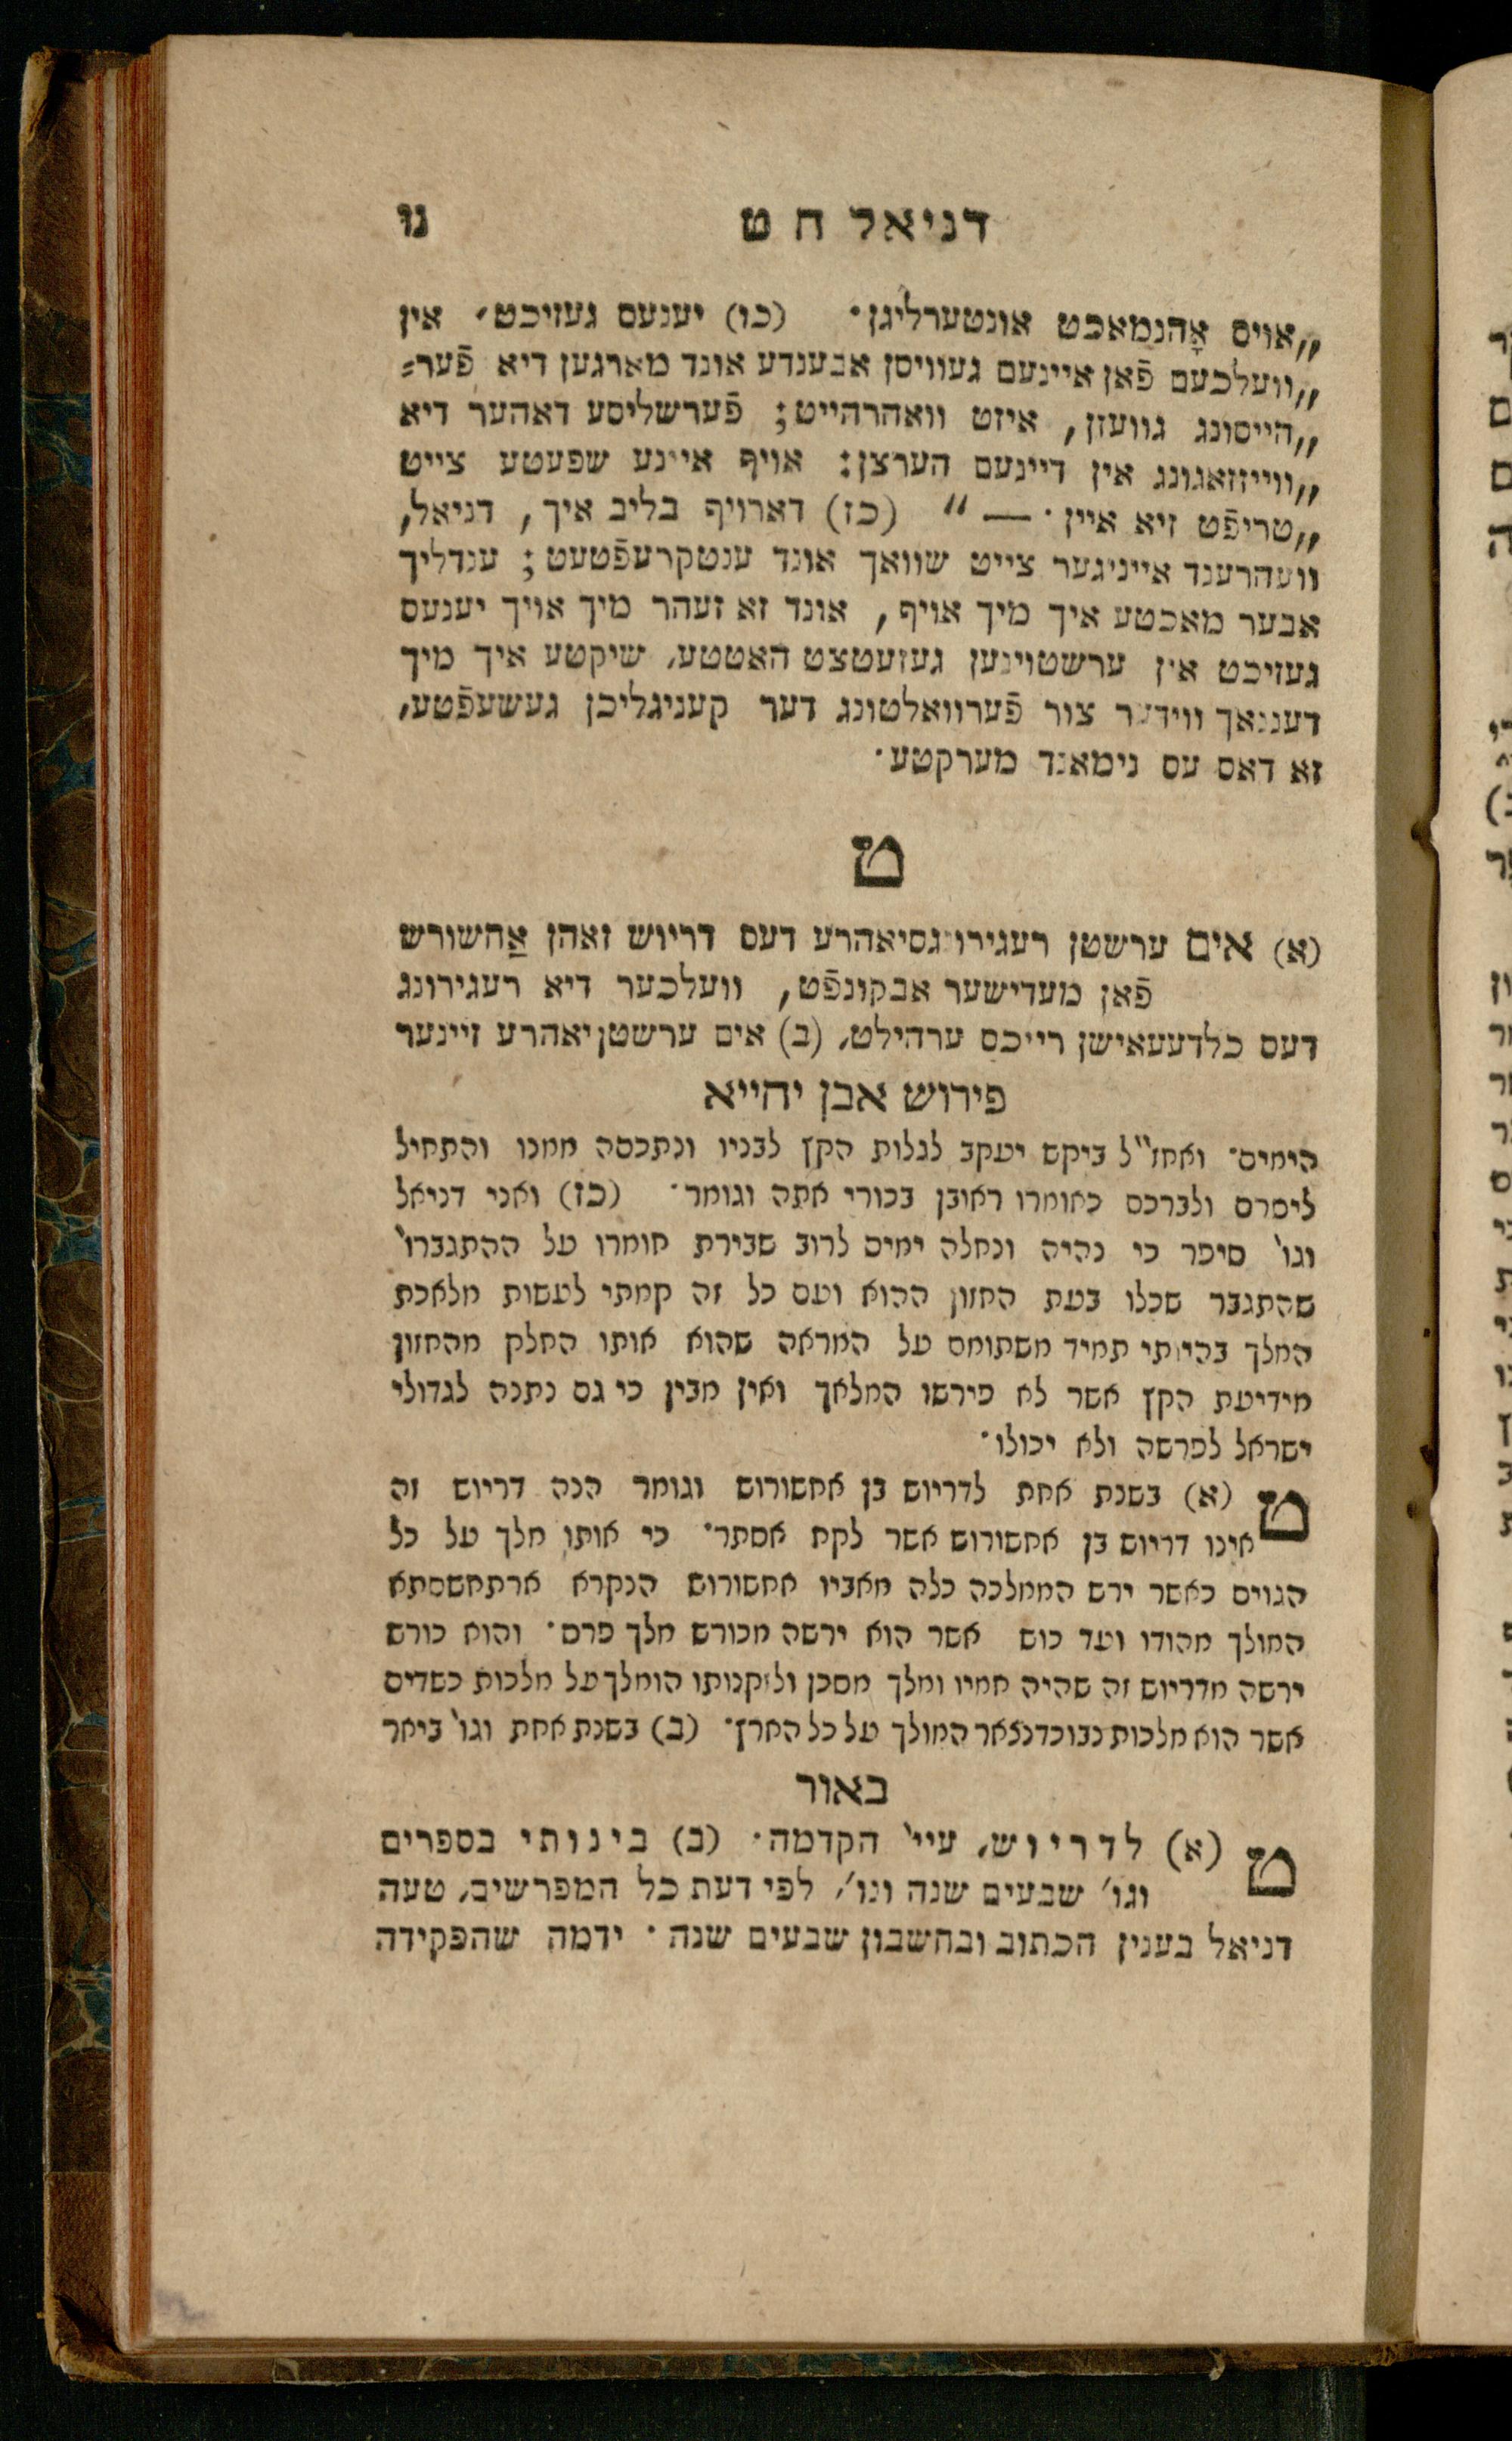 דניאל ח ט נו
„אויס אָהנמאכט אונטערליגן· (כו) יענעס געזיכט, אין
„וועלכעם פֿאן איינעם געוויסן אבענדע אונד מארגען דיא פֿער=
„הייסונג גוועזן, איזט וואהרהייט; פֿערשליסע דאהער דיא
„ווייזזאגונג אין דיינעם הערצן: אויף איינע שפעטע צייט
„טריפֿט זיא איין· — “ (כז) דארויף בליב איך, דניאל,
וועהרענד אייניגער צייט שוואך אונד ענטקרעפֿטעט; ענדליך
אבער מאכטע איך מיך אויף, אונד זא זעהר מיך אויך יענעס
געזיכט אין ערשטוינען געזעטצט האטטע, שיקטע איך מיך
דעננאך ווידער צור פֿערוואלטונג דער קעניגליכן געשעפֿטע,
זא דאס עס נימאנד מערקטע·
ט
(א) אים ערשטן רעגירונגסיאהרע דעס דריוש זאהן אַחשורש
פֿאן מעדישער אבקונפֿט, וועלכער דיא רעגירונג
דעס כלדעעאישן רייכס ערהילט, (ב) אים ערשטן יאהרע זיינער
פירוש אבן יחייא
הימים· ואחז"ל ביקש יעקב לגלות הקץ לבניו ונתכסה ממנו והתחיל
ליסרם ולברכם כאומרו ראובן בכורי אתה וגומר· (כז) ואני דניאל
וגו' סיפר כי נהיה ונחלה ימים לרוב שבירת חומרו על ההתגברו'
שהתגבר שכלו בעת החזון ההוא ועם כל זה קמתי לעשות מלאכת
המלך בהיותי תמיד משתומם על המראה שהוא אותו החלק מהחזון
מידיעת הקץ אשר לא פירשו המלאך ואין מבין כי גם נתנה לגדולי
ישראל לפרשה ולא יכולו·
ט (א) בשנת אחת לדריוש בן אחשורוש וגומר הנה דריוש זה
אינו דריוש בן אחשורוש אשר לקח אסתר· כי אותו מלך על כל
הגוים כאשר ירש הממלכה כלה מאביו אחשורוש הנקרא ארתחשסתא
המולך מהודו ועד כוש אשר הוא ירשה מכורש מלך פרס· והוא כורש
ירשה מדריוש זה שהיה חמיו ומלך מסכן ולזקנותו הומלך על מלכות כשדים
אשר הוא מלכות נבוכדנצאר המולך על כל הארץ· (ב) בשנת אחת וגו' ביאר
באור
ט (א) לדריוש, עיי' הקדמה· (ב) בינותי בספרים
וגו' שבעים שנה וגו', לפי דעת כל המפרשים, טעה
דניאל בענין הכתוב ובחשבון שבעים שנה· ידמה שהפקידה